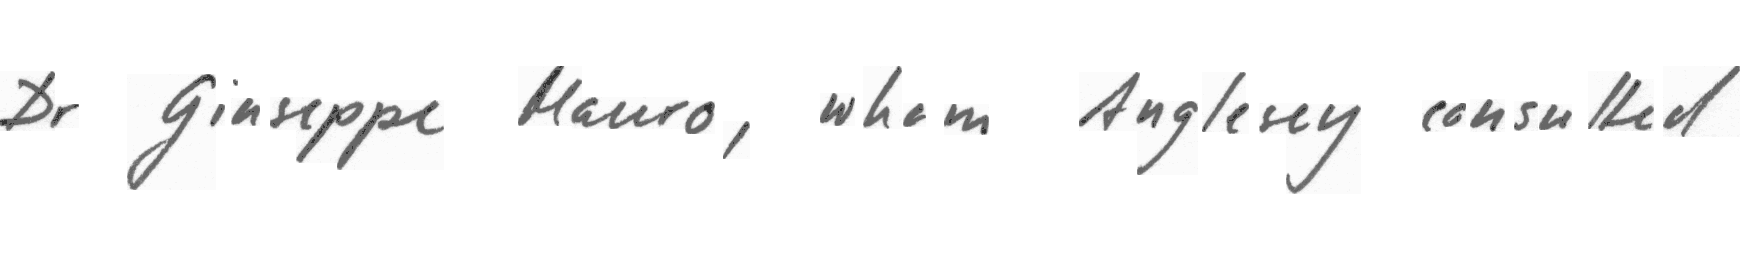 Dr Giuseppe Mauro, whom Anglesey consulted